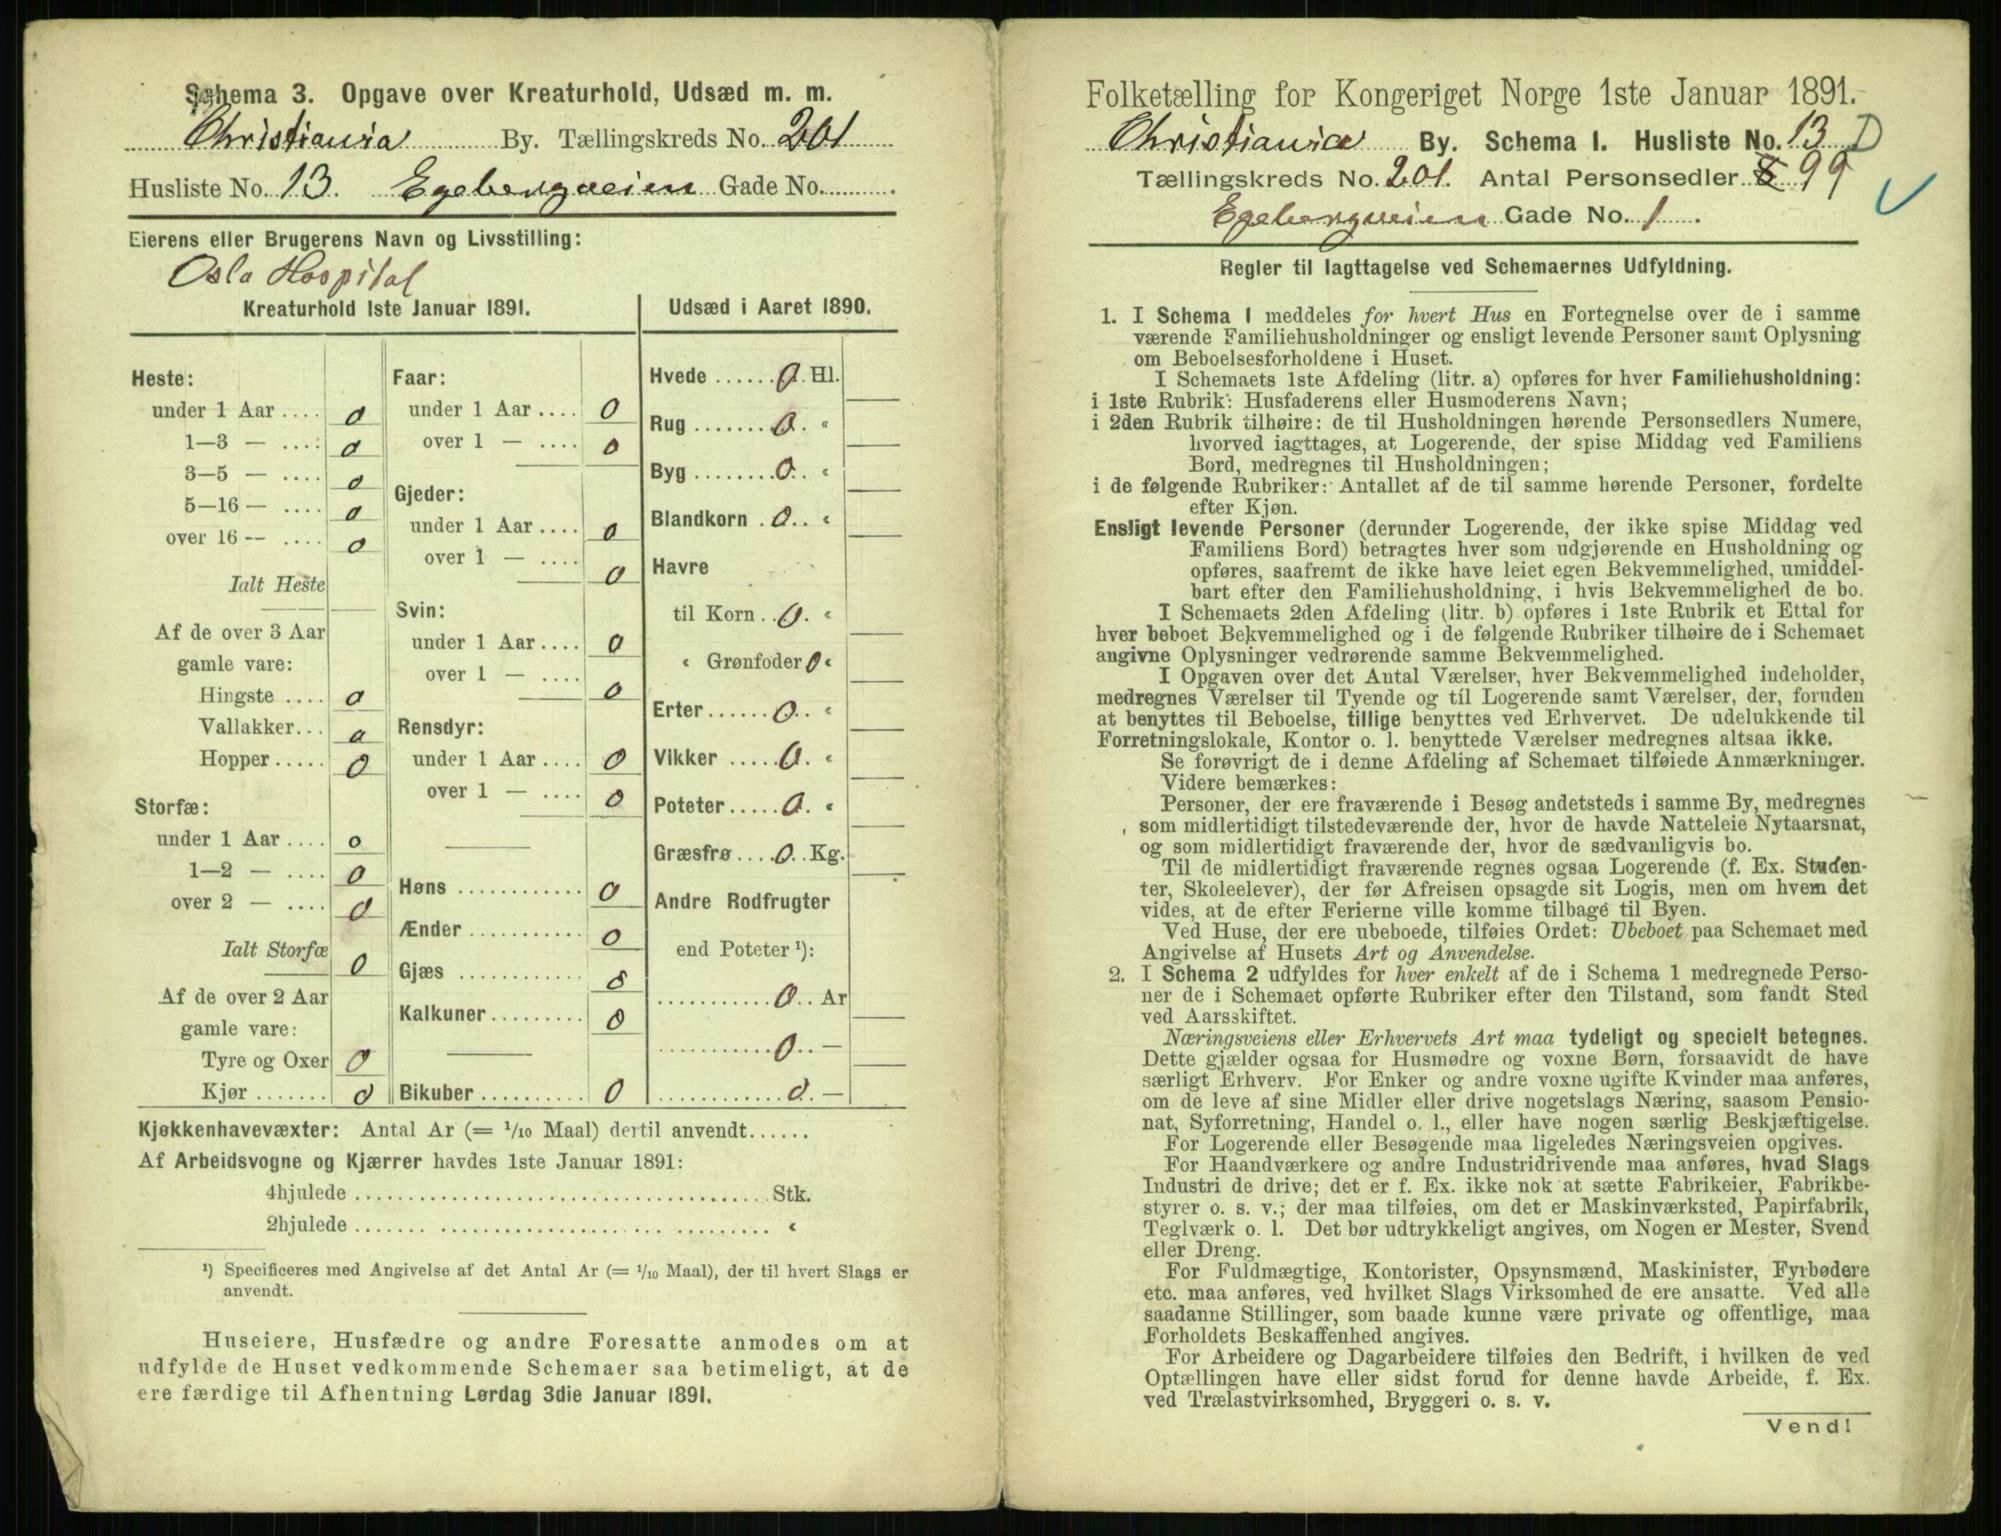 Schema 3. Opgave over Kreaturhold, Udsæd m. m.
Christiania By. Tællingskreds No. 201
Husliste No. 13. Egebergveien Gade No.
Eierens eller Brugerens Navn og Livsstilling:
Oslo Hospital
Kreaturhold 1ste Januar 1891.
Heste:
under 1 Aar .... 0
1—3 — .... 0
3—5 — .... 0
5—16 — .... 0
over 16 — .... 0
Ialt Heste
Af de over 3 Aar
gamle vare:
Hingste .... 0
Vallakker... 0
Hopper ..... 0
Storfæ:
under 1 Aar .... 0
1—2 — .... 0
over 2 — .... 0
Ialt Storfæ 0
Af de over 2 Aar
gamle vare:
Tyre og Oxer 0
Kjør ....... 0
Faar:
under 1 Aar .... 0
over 1 — .... 0
Gjeder:
under 1 Aar .... 0
over 1 — .... 0
Svin:
under 1 Aar .... 0
over 1 — .... 0
Rensdyr:
under 1 Aar .... 0
over 1 — .... 0
Høns ............ 0
Ænder ........... 0
Gjæs ............ 0
Kalkuner ......... 0
Bikuber .......... 0
Udsæd i Aaret 1890.
Hvede ...... 0. Hl.
Rug ....... 0. «
Byg ........ 0. «
Blandkorn . 0.. «
Havre
til Korn .. 0. «
« Grønfoder 0 «
Erter ...... 0.. «
Vikker ..... 0. «
Poteter ..... 0. «
Græsfrø .... 0.. Kg.
Andre Rodfrugter
end Poteter ¹):
........... 0.. Ar
........... 0.. —
............ 0. —
Kjøkkenhavevæxter: Antal Ar (= 1/10 Maal) dertil anvendt......
Af Arbeidsvogne og Kjærrer havdes 1ste Januar 1891:
4hjulede ...................................... Stk.
2hjulede ...................................... «
¹) Specificeres med Angivelse af det Antal Ar (= 1/10 Maal), der til hvert Slags er
anvendt.
Huseiere, Husfædre og andre Foresatte anmodes om at
udfylde de Huset vedkommende Schemaer saa betimeligt, at de
ere færdige til Afhentning Lørdag 3die Januar 1891.
Folketælling for Kongeriget Norge 1ste Januar 1891.
Christiania By. Schema I. Husliste No. 13 D
Tællingskreds No. 201. Antal Personsedler 99
Egebergveien Gade No. 1.
Regler til Iagttagelse ved Schemaernes Udfyldning.
1. I Schema 1 meddeles for hvert Hus en Fortegnelse over de i samme
værende Familiehusholdninger og ensligt levende Personer samt Oplysning
om Beboelsesforholdene i Huset.
I Schemaets 1ste Afdeling (litr. a) opføres for hver Familiehusholdning:
i 1ste Rubrik: Husfaderens eller Husmoderens Navn;
i 2den Rubrik tilhøire: de til Husholdningen hørende Personsedlers Numere,
hvorved iagttages, at Logerende, der spise Middag ved Familiens
Bord, medregnes til Husholdningen;
i de følgende Rubriker: Antallet af de til samme hørende Personer, fordelte
efter Kjøn.
Ensligt levende Personer (derunder Logerende, der ikke spise Middag ved
Familiens Bord) betragtes hver som udgjørende en Husholdning og
opføres, saafremt de ikke have leiet egen Bekvemmelighed, umiddel-
bart efter den Familiehusholdning, i hvis Bekvemmelighed de bo.
I Schemaets 2den Afdeling (litr. b) opføres i 1ste Rubrik et Ettal for
hver beboet Bekvemmelighed og i de følgende Rubriker tilhøire de i Schemaet
angivne Oplysninger vedrørende samme Bekvemmelighed.
I Opgaven over det Antal Værelser, hver Bekvemmelighed indeholder,
medregnes Værelser til Tyende og til Logerende samt Værelser, der, foruden
at benyttes til Beboelse, tillige benyttes ved Erhvervet. De udelukkende til
Forretningslokale, Kontor o. l. benyttede Værelser medregnes altsaa ikke.
Se forøvrigt de i denne Afdeling af Schemaet tilføiede Anmærkninger.
Videre bemærkes:
Personer, der ere fraværende i Besøg andetsteds i samme By, medregnes
som midlertidigt tilstedeværende der, hvor de havde Natteleie Nytaarsnat,
og som midlertidigt fraværende der, hvor de sædvanligvis bo.
Til de midlertidigt fraværende regnes ogsaa Logerende (f. Ex. Studen-
ter, Skoleelever), der før Afreisen opsagde sit Logis, men om hvem det
vides, at de efter Ferierne ville komme tilbage til Byen.
Ved Huse, der ere ubeboede, tilføies Ordet: Ubeboet paa Schemaet med
Angivelse af Husets Art og Anvendelse.
2. I Schema 2 udfyldes for hver enkelt af de i Schema 1 medregnede Perso-
ner de i Schemaet opførte Rubriker efter den Tilstand, som fandt Sted
ved Aarsskiftet.
Næringsveiens eller Erhvervets Art maa tydeligt og specielt betegnes.
Dette gjælder ogsaa for Husmødre og voxne Børn, forsaavidt de have
særligt Erhverv. For Enker og andre voxne ugifte Kvinder maa anføres,
om de leve af sine Midler eller drive nogetslags Næring, saasom Pensio-
nat, Syforretning, Handel o. l., eller have nogen særlig Beskjæftigelse.
For Logerende eller Besøgende maa ligeledes Næringsveien opgives.
For Haandværkere og andre Industridrivende maa anføres, hvad Slags
Industri de drive; det er f. Ex. ikke nok at sætte Fabrikeier, Fabrikbe-
styrer o. s. v.; der maa tilføies, om det er Maskinværksted, Papirfabrik,
Teglværk o. l. Det bør udtrykkeligt angives, om Nogen er Mester, Svend
eller Dreng.
For Fuldmægtige, Kontorister, Opsynsmænd, Maskinister, Fyrbødere
etc. maa anføres, ved hvilket Slags Virksomhed de ere ansatte. Ved alle
saadanne Stillinger, som baade kunne være private og offentlige, maa
Forholdets Beskaffenhed angives.
For Arbeidere og Dagarbeidere tilføies den Bedrift, i hvilken de ved
Optællingen have eller sidst forud for denne havde Arbeide, f. Ex.
ved Trælastvirksomhed, Bryggeri o. s. v.
Vend!